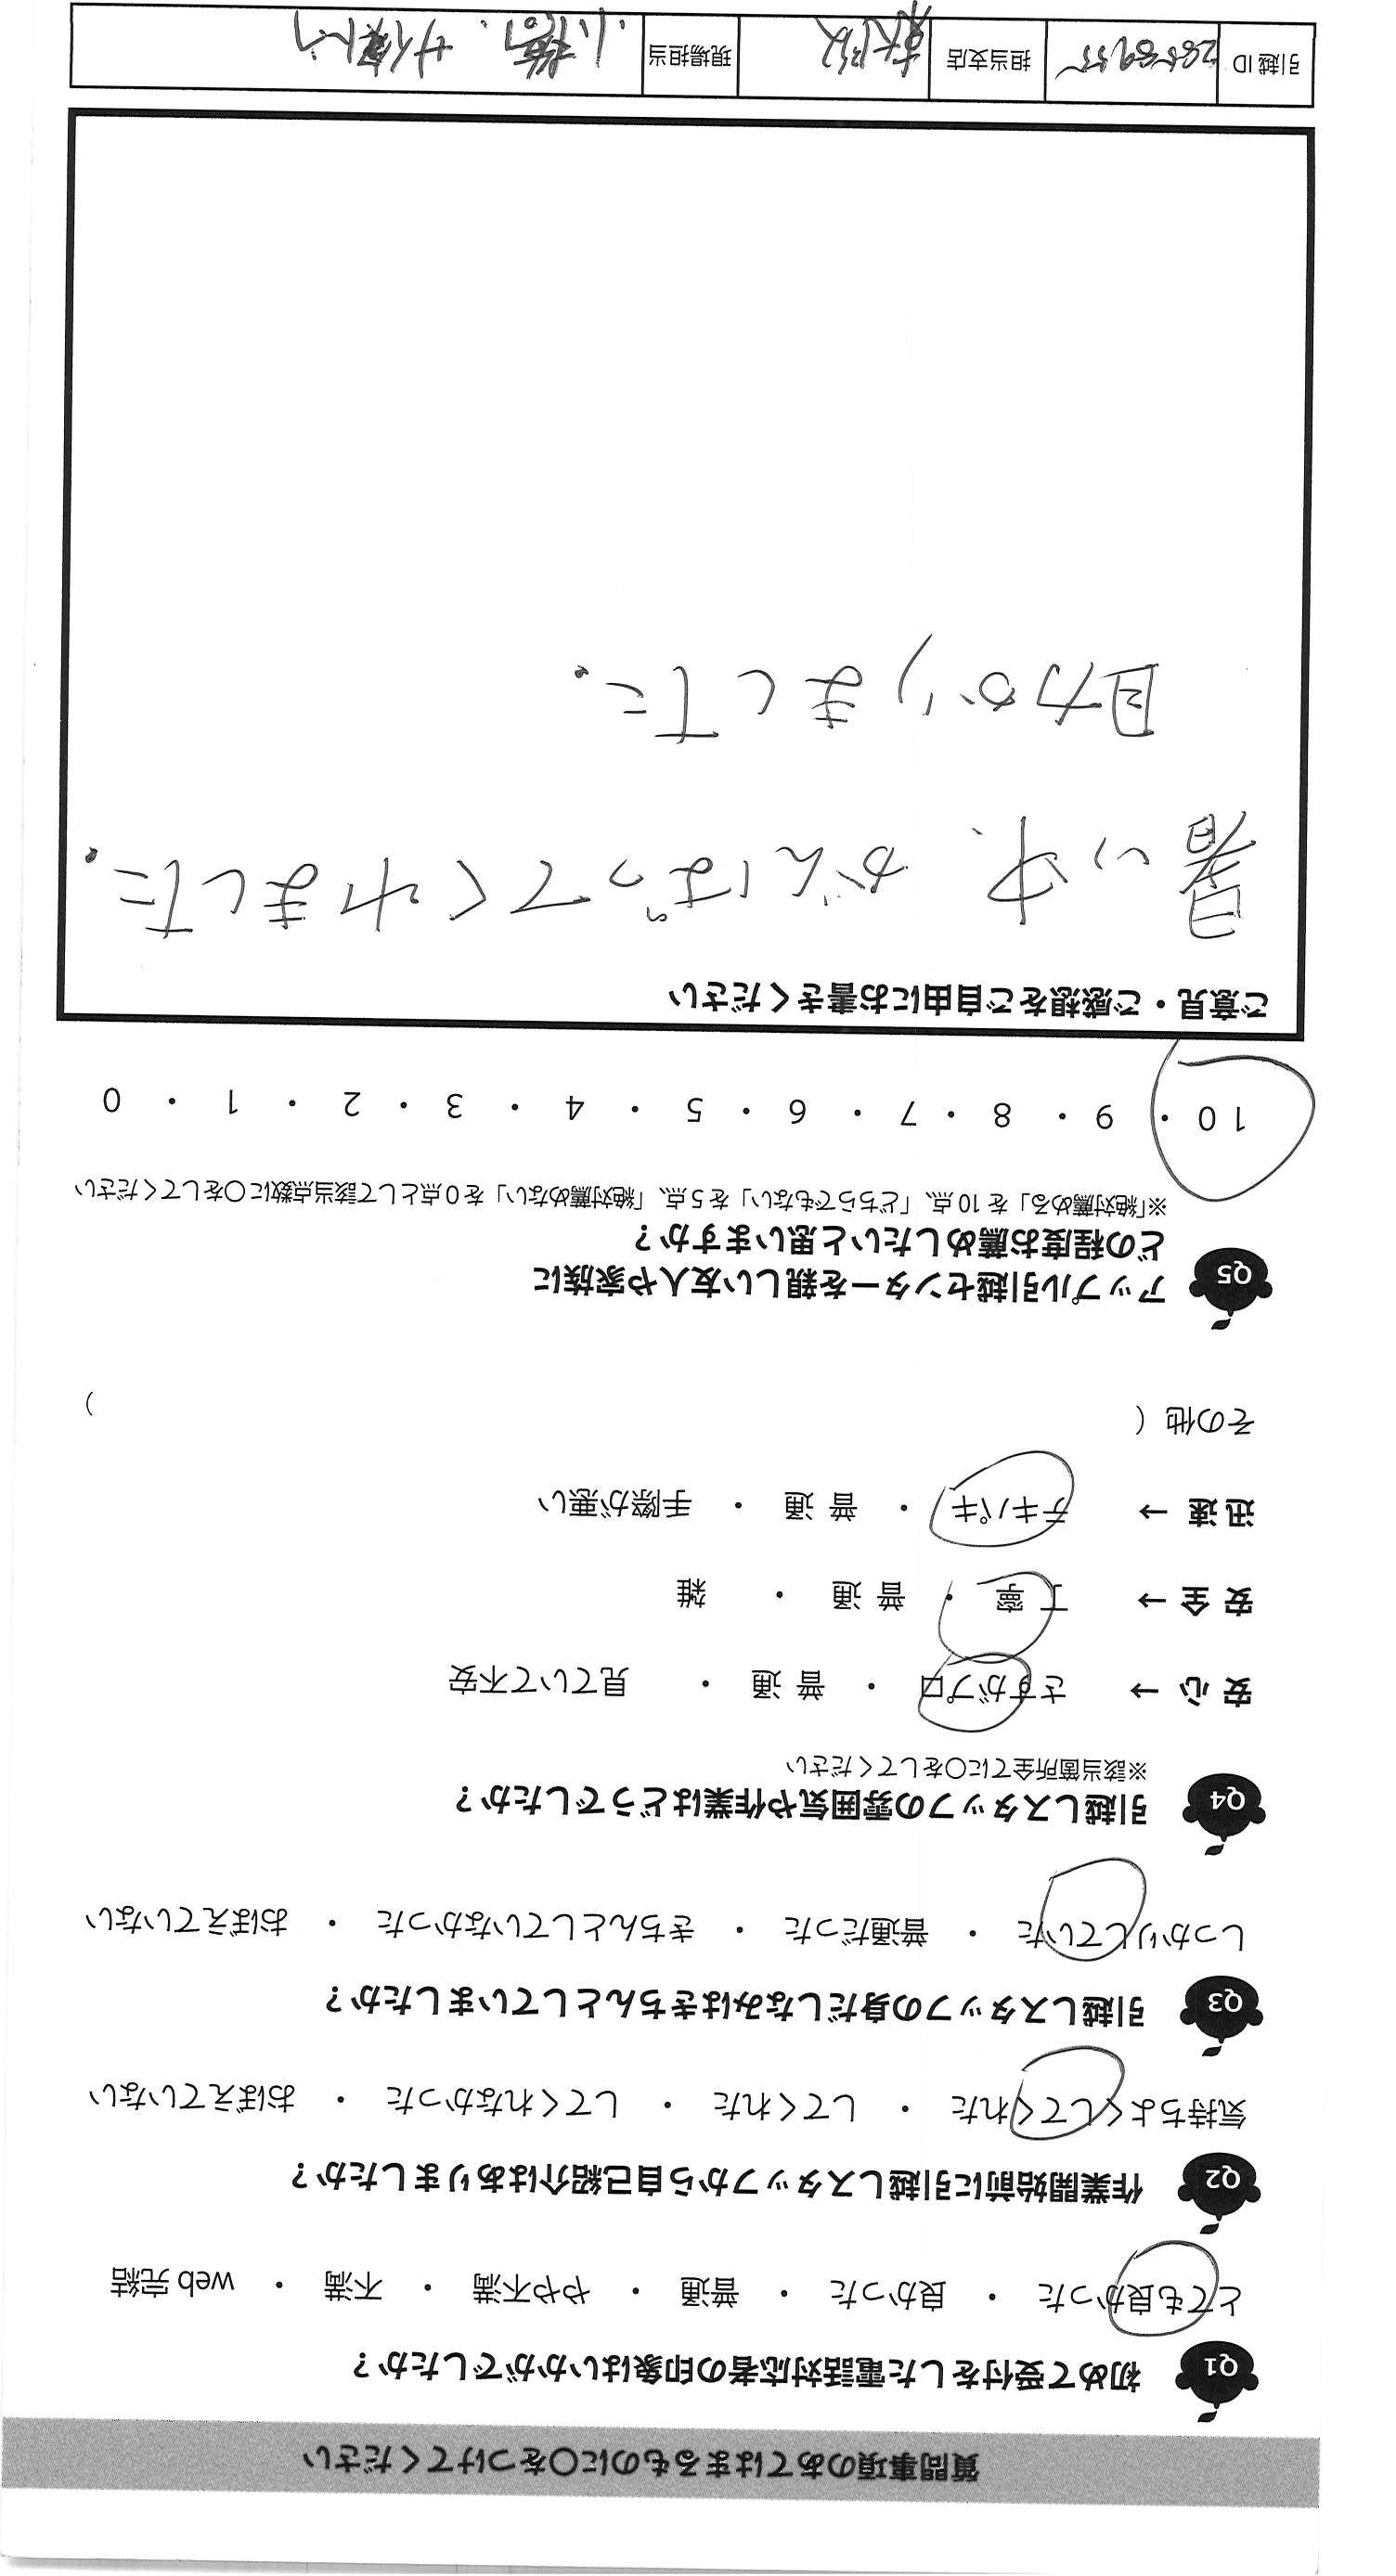 質問事項のあてはまるものに〇をつけてください
Q1 初めて受付をした電話対応者の印象はいかがでしたか？
とても良かった ・ 良かった ・ 普通 ・ やや不満 ・ 不満 ・ web 完結
Q2 作業開始前に引越しスタッフから自己紹介はありましたか？
気持ちよくしてくれた ・ してくれた ・ してくれなかった ・ おぼえていない
Q3 引越しスタッフの身だしなみはきちんとしていましたか？
しっかりしていた ・ 普通だった ・ きちんとしていなかった ・ おぼえていない
Q4 引越しスタッフの雰囲気や作業はどうでしたか？
※該当箇所全てに〇をしてください
安 心 → さすがプロ ・ 普 通 ・ 見ていて不安
安 全 → 丁 寧 ・ 普 通 ・ 雑
迅 速 → テキパキ ・ 普 通 ・ 手際が悪い
その他（ ）
Q5 アップル引越センターを親しい友人や家族に
どの程度お薦めしたいと思いますか？
※「絶対薦める」を 10 点、「どちらでもない」を 5 点、「絶対薦めない」を 0 点として該当点数に〇をしてください
10 ・ 9 ・ 8 ・ 7 ・ 6 ・ 5 ・ 4 ・ 3 ・ 2 ・ 1 ・ 0
ご意見・ご感想をご自由にお書きください
暑い中、がんばってくれました。
助かりました。
引越 ID 担当支店 現場担当 小橋、